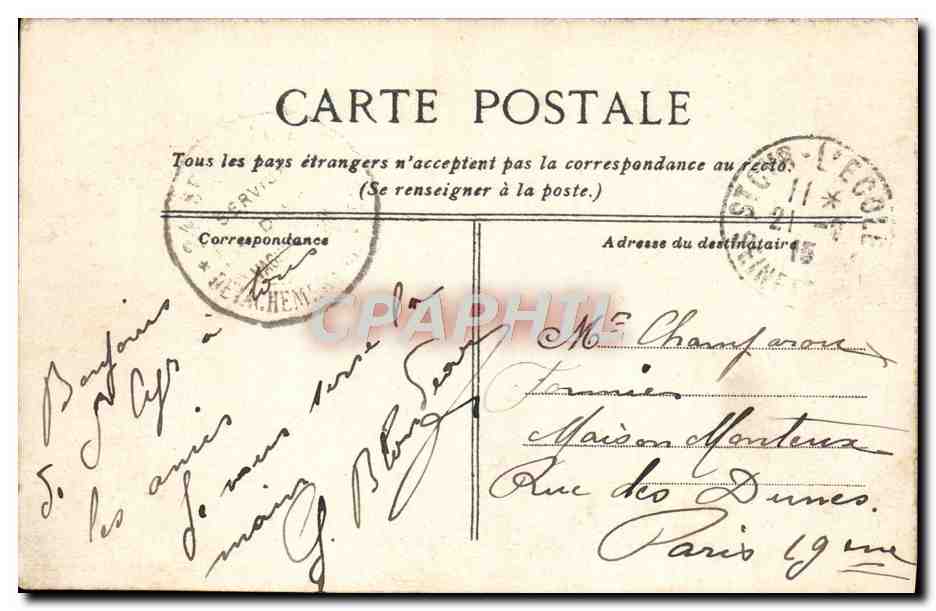 CARTE POSTALE
Tous les pays étrangers n'acceptent pas la correspondance au recto.
(Se renseigner à la poste.)
ST CYR-L'ÉCOLE
11 *
21
15
SERVICE
CHEMINS
Correspondance
Adresse du destinataire
Bonjour
de St Cyr à tous
les amis
Je vous serre la
main
G.
Mr Champaron
Maison Monteux
Rue des Dunes.
Paris 19eme
CPAPHIL